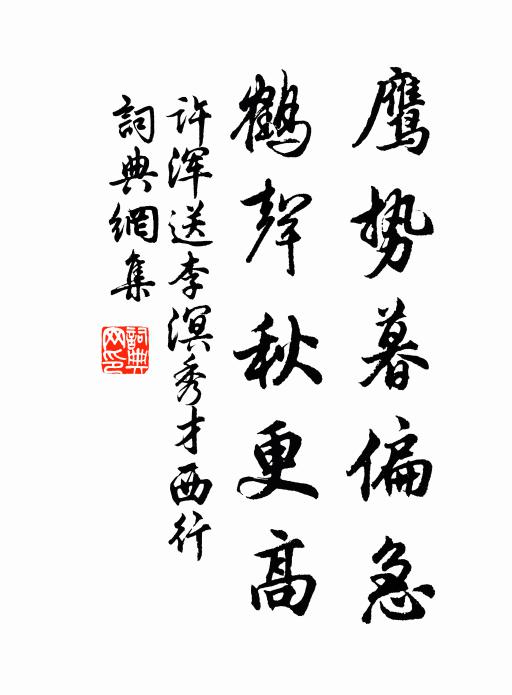 鹰势暮偏急
鹤聲秋更高
许浑送李溟秀才西行
词典網集
詞典网印